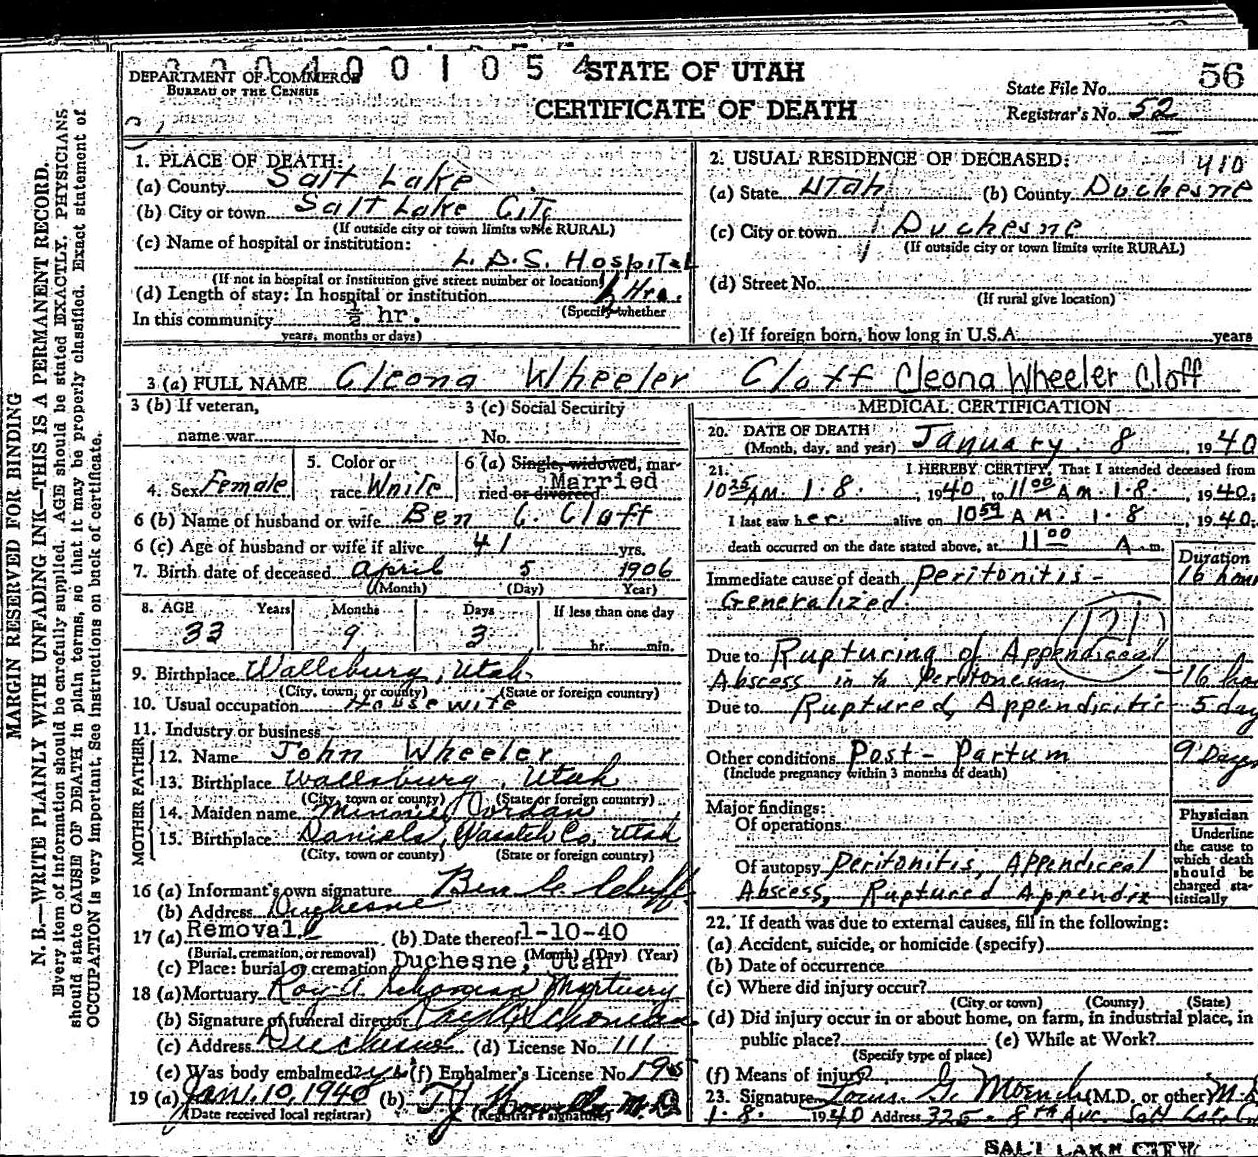 DEPARTMENT OF COMMERCE
BUREAU OF THE CENSUS
0 0 1 0 5 4
STATE OF UTAH
CERTIFICATE OF DEATH
56
State File No.
Registrar's No. 52
1. PLACE OF DEATH:
(a) County Salt Lake
(b) City or town Salt Lake City
(If outside city or town limits write RURAL)
(c) Name of hospital or institution:
L.D.S. Hospital
(If not in hospital or institution give street number or location)
(d) Length of stay: In hospital or institution ½ Hrs.
(Specify whether
In this community ½ hr.
years, months or days)
2. USUAL RESIDENCE OF DECEASED: 410
(a) State Utah (b) County Duchesne
(c) City or town Duchesne
(If outside city or town limits write RURAL)
(d) Street No.
(If rural give location)
(e) If foreign born, how long in U.S.A. years
3 (a) FULL NAME Cleona Wheeler Cloff Cleona Wheeler Cloff
3 (b) If veteran, name war
3 (c) Social Security No.
4. Sex Female
5. Color or race White
6 (a) Single, widowed, married or divorced Married
6 (b) Name of husband or wife Ben C. Cloff
6 (c) Age of husband or wife if alive 41 yrs.
7. Birth date of deceased April 5 1906
(Month) (Day) Year)
8. AGE Years Months Days If less than one day
33 9 3 hr. min.
9. Birthplace Wallsburg, Utah
(City, town, or county) (State or foreign country)
10. Usual occupation Housewife
11. Industry or business
FATHER
12. Name John Wheeler
13. Birthplace Wallsburg, Utah
(City, town or county) (State or foreign country)
MOTHER
14. Maiden name Minnie Jordan
15. Birthplace Daniels, Wasatch Co, Utah
(City, town or county) (State or foreign country)
16 (a) Informant's own signature Ben C. Cluff
(b) Address Duchesne
17 (a) Removal (b) Date thereof 1-10-40
(Burial, cremation, or removal) (Month) (Day) (Year)
(c) Place: burial or cremation Duchesne, Utah
18 (a) Mortuary Roy A. Schonian Mortuary
(b) Signature of funeral director Roy A Schonian
(c) Address Duchesne (d) License No. 111
(e) Was body embalmed? yes (f) Embalmer's License No.
19 (a) Jan. 10, 1940 (b) M.D.
(Date received local registrar) (Registrar's signature)
MEDICAL CERTIFICATION
20. DATE OF DEATH
(Month, day, and year) January 8 1940
21. I HEREBY CERTIFY, That I attended deceased from
10 25 AM. 1.8. , 1940, to 11 00 A M. 1.8. , 1940,
I last saw her alive on 10 59 A M. 1.8 , 1940,
death occurred on the date stated above, at 11 00 A m.
Duration
Immediate cause of death Peritonitis - 16 hou
Generalized.
121
Due to Rupturing of Appendiceal
Abscess in the Peritoneum - 16 hou
Due to Ruptured Appendicitis - 5 day
Other conditions Post-Partum 9 Days
(Include pregnancy within 3 months of death)
Major findings:
Of operations
Of autopsy Peritonitis, Appendiceal
Abscess, Ruptured Appendix
Physician
Underline the cause to which death should be charged statistically
22. If death was due to external causes, fill in the following:
(a) Accident, suicide, or homicide (specify)
(b) Date of occurrence
(c) Where did injury occur?
(City or town) (County) (State)
(d) Did injury occur in or about home, on farm, in industrial place, in
public place? (e) While at Work?
(Specify type of place)
(f) Means of injury
23. Signature Louis G. Moench (M.D. or other) M.D
1.8. 1940 Address 325 - 8th Ave. Salt Lake C
SALT LAKE CITY
MARGIN RESERVED FOR BINDING
N. B.—WRITE PLAINLY WITH UNFADING INK—THIS IS A PERMANENT RECORD.
Every item of information should be carefully supplied. AGE should be stated EXACTLY. PHYSICIANS
should state CAUSE OF DEATH in plain terms, so that it may be properly classified. Exact statement of
OCCUPATION is very important. See instructions on back of certificate.